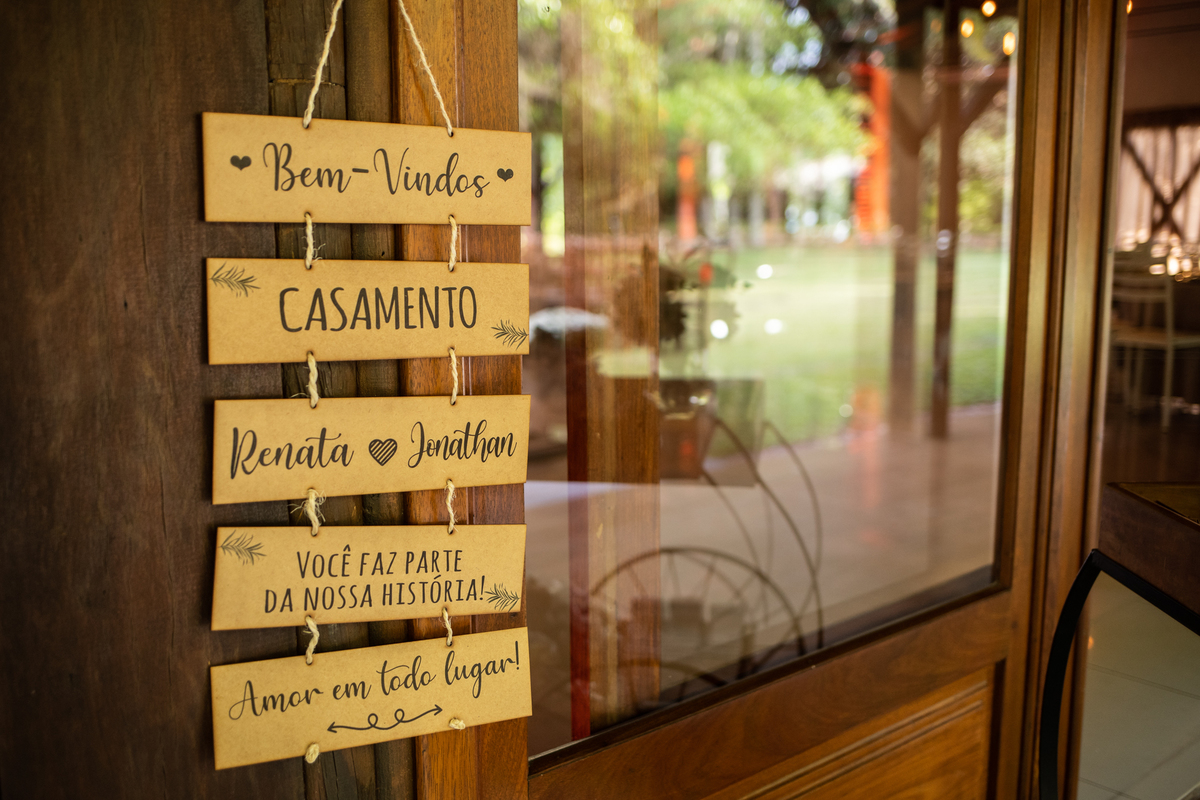 Bem-Vindos
CASAMENTO
Renata Jonathan
VOCÊ FAZ PARTE
DA NOSSA HISTÓRIA!
Amor em todo lugar!